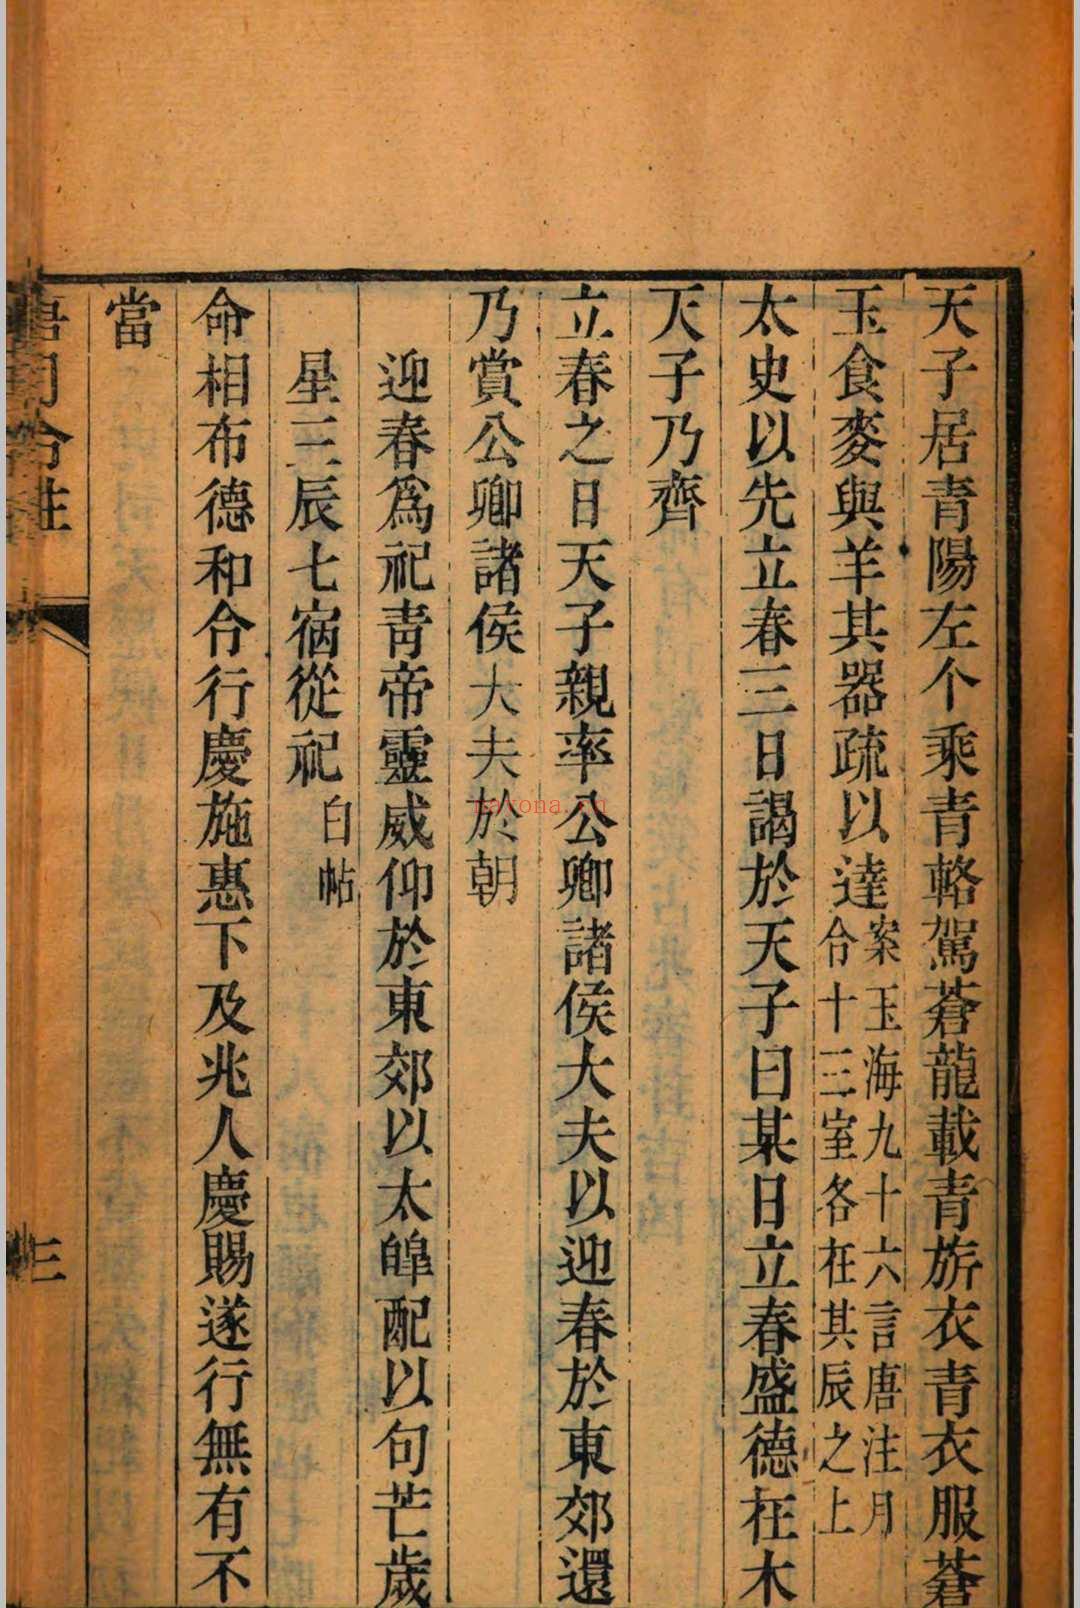 天子居青陽左个乘青輅駕蒼龍載青旂衣青衣服蒼
玉食麥與羊其器疏以達案玉海九十六言唐注月
令十三室各在其辰之上
太史以先立春三日謁於天子曰某日立春盛德在木
天子乃齊
立春之日天子親率公卿諸侯大夫以迎春於東郊還
乃賞公卿諸侯大夫於朝
迎春爲祀青帝靈威仰於東郊以太皥配以句芒歲
星三辰七宿從祀白帖
命相布德和令行慶施惠下及兆人慶賜遂行無有不
當
月令注
三